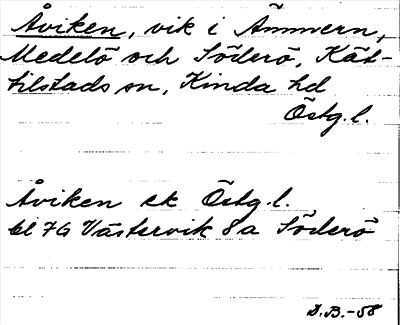 Åviken, vik i Ämmern,
Medelö och Söderö, Kät-
tilstads sn, Kinda hd
Östg.l.
Åviken ek Östg.l.
bl 7G Västervik 8a Söderö
D.B.-58